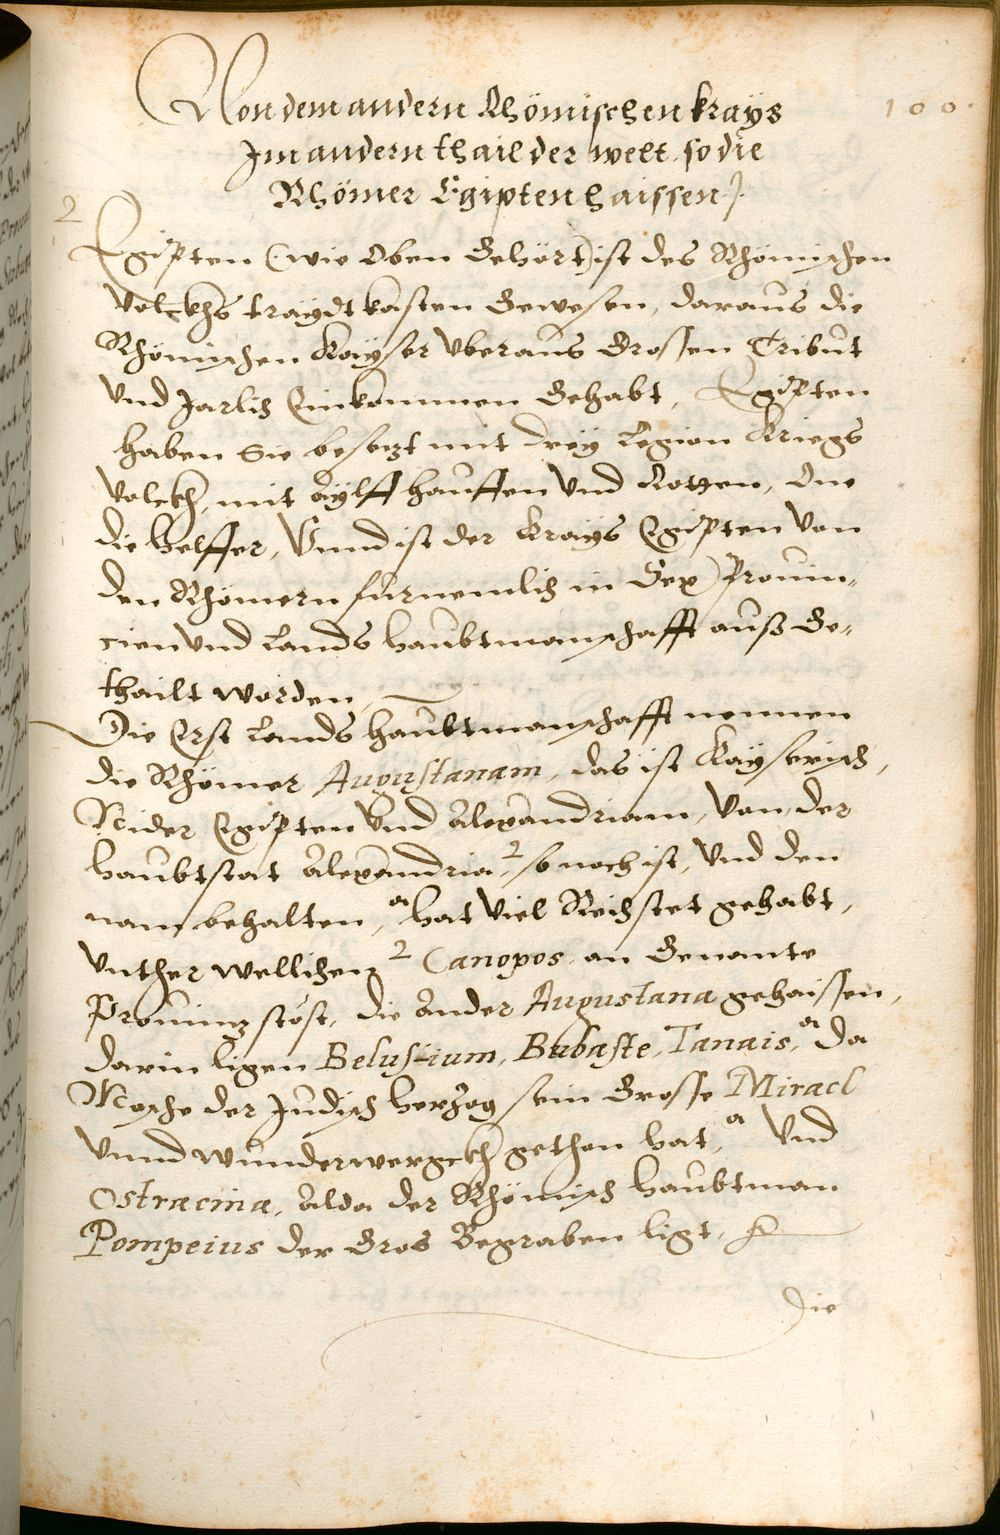 100.
Von dem andern Rhömischen krays
Im andern thail der welt, so die
Rhömer Egipten haissen).
2
Egipten (wie Oben Gehört) ist des Rhömischen
Volckhs traydt kasten Gewesen, daraus die
Rhömischen Kayser vberaus Grossen Tribut
Vnd Jarlich Einkommen Gehabt, Egipten
haben Sie besezt mit drey Legion Kriegs
Volckh, mit aylff hauffen Vnd Rotten, One
die helffer, Vnnd ist der Krays Egipten Von
den Rhömern fürnemlich in Sex Prouin„
cien Vnd Lands haubtmanschafft auß Ge„
thailt worden,
Die Erst Lands haubtmanschafft nennen
die Rhömer Augustanam, das ist Kayserisch,
Nider Egipten Vnd Alexandriam, Von der
haubtstat Alexandria, 2 so noch ist, Vnd den
nam behalten, a hat Viel Reichstet gehabt,
Vnther wellichen 2 Canopos an Genante
Prouinz stöst, die Ander Augustana gehaissen,
darin ligen Belusium, Bubaste, Tanais, a da
Moyse der Judisch herzog sein Grosse Miracl
Vnnd wunderwergckh gethan hat, a Vnd
Ostracina, Alda der Rhömisch haubtman
Pompeius der Gros Begraben ligt,
Die